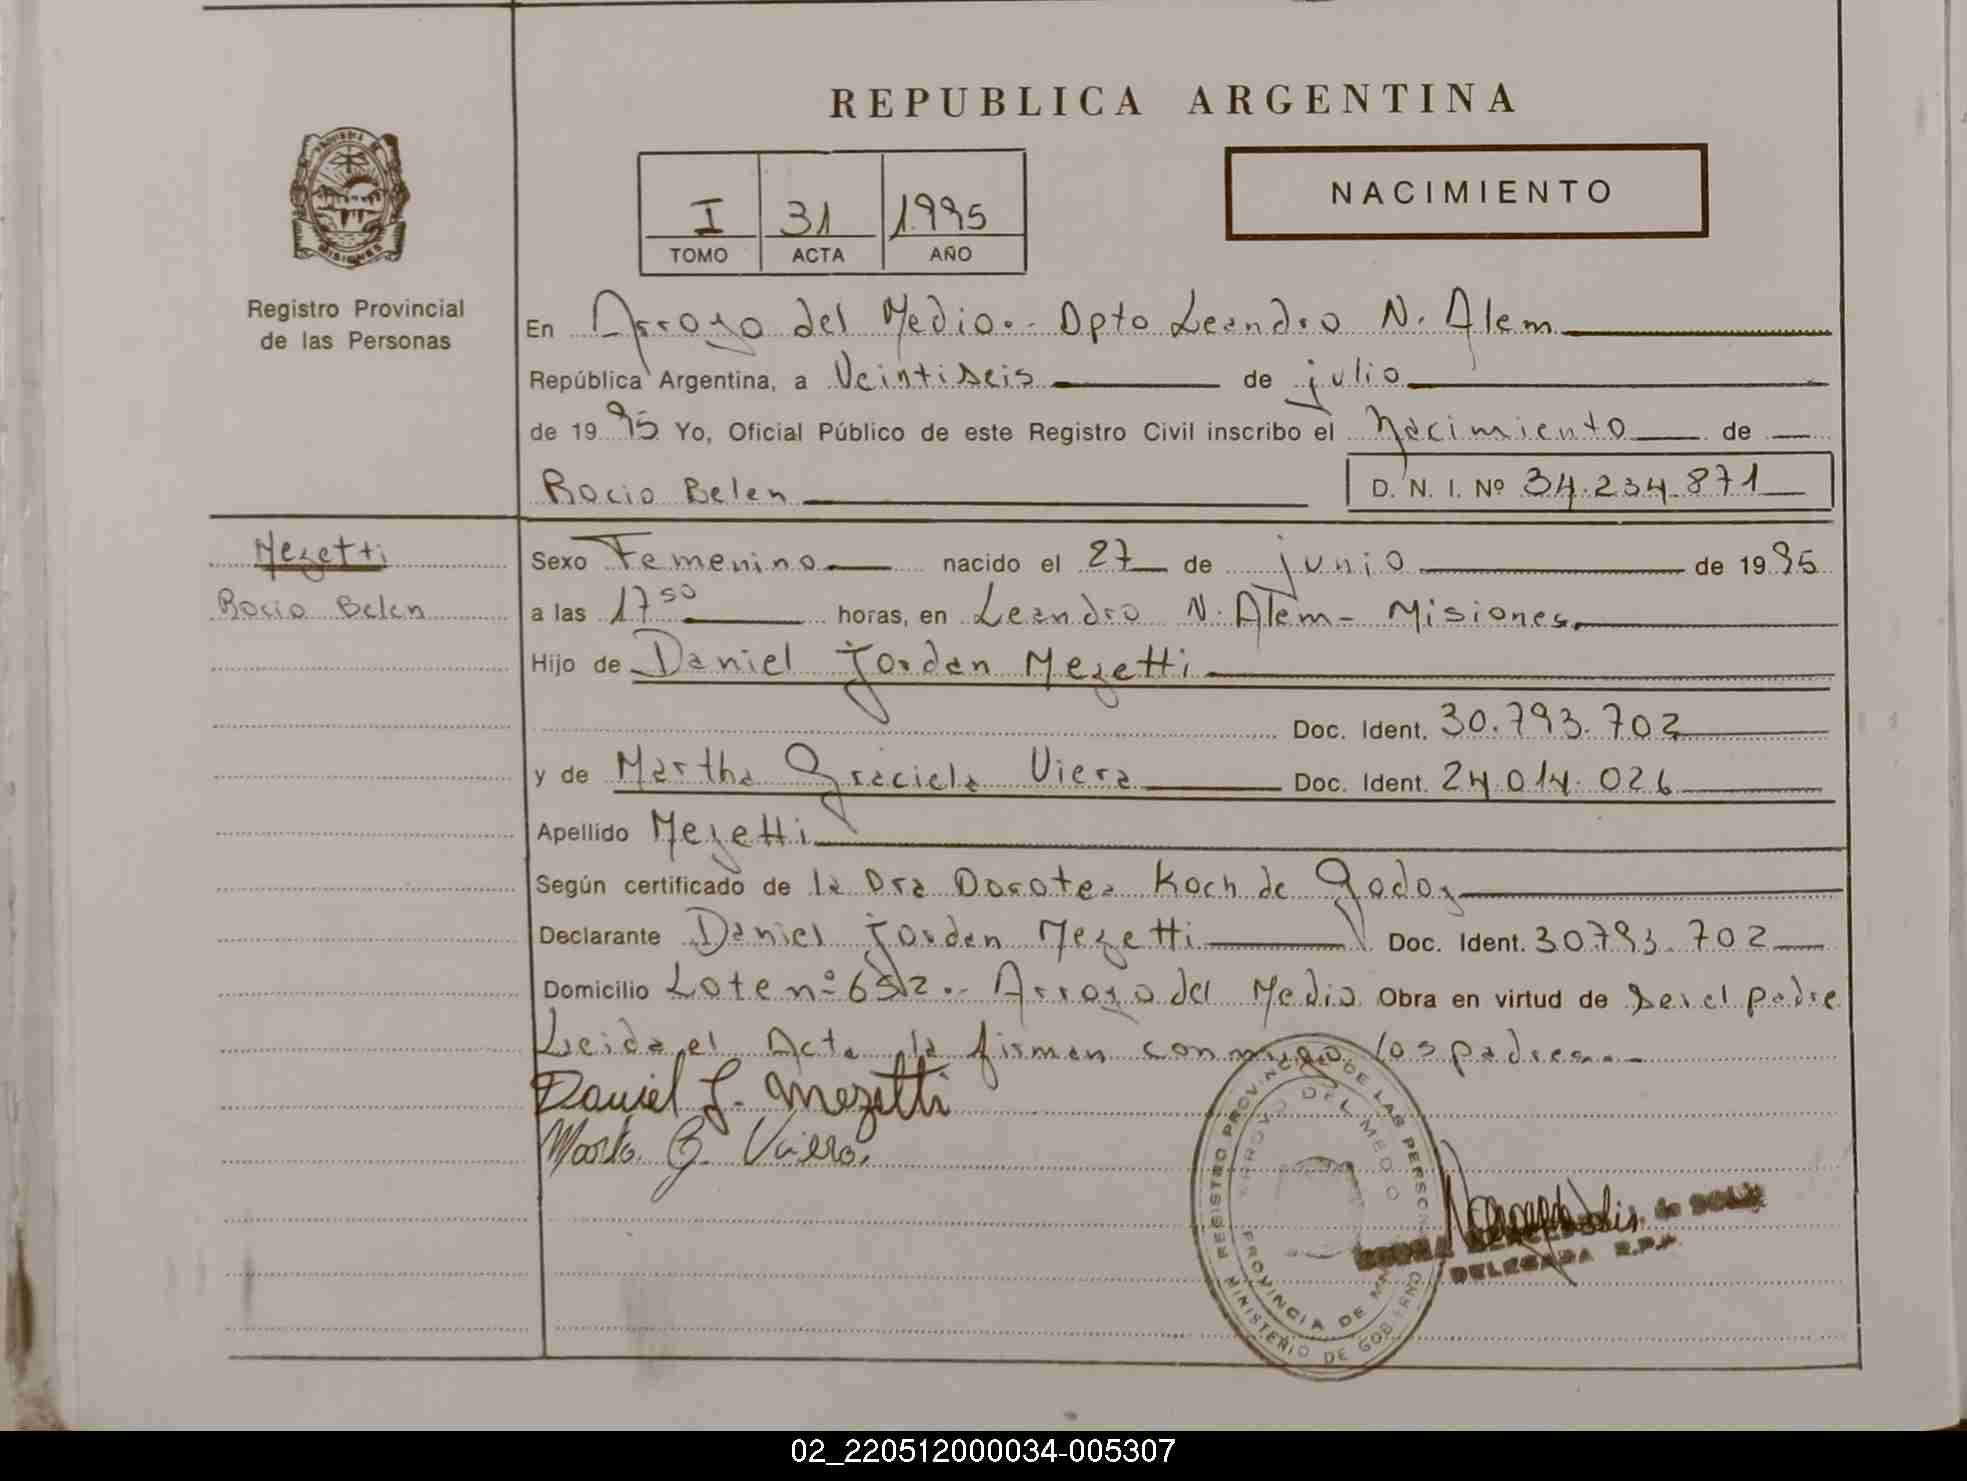 REPUBLICA ARGENTINA
MISIONES
Registro Provincial
de las Personas
I 31 1.995
TOMO ACTA AÑO
NACIMIENTO
En Arroyo del Medio.- Dpto Leandro N. Alem
República Argentina, a Veintiseis de julio
de 19 95 Yo, Oficial Público de este Registro Civil inscribo el Nacimiento de
Rocio Belen D. N. I. Nº 34.234.871
Mezetti
Rocio Belen
Sexo Femenino nacido el 27 de junio de 19 95
a las 17 50 horas, en Leandro N. Alem - Misiones
Hijo de Daniel Jordan Mezetti
Doc. Ident. 30.793.702
y de Martha Graciela Viera Doc. Ident. 24.014.026
Apellido Mezetti
Según certificado de la Dra Dorotea Koch de Godoy
Declarante Daniel Jordan Mezetti Doc. Ident. 30793.702
Domicilio Lote nº 652.- Arroyo del Medio Obra en virtud de Ser el padre
Leida el Acta la firman conmigo los padres.-
Daniel J. Mezetti
Marta G. Viera.
REGISTRO PROVINCIAL DE LAS PERSONAS
ARROYO DEL MEDIO
PROVINCIA DE
MINISTERIO DE GOBIERNO
DELEGADA R.P.P.
02_220512000034-005307